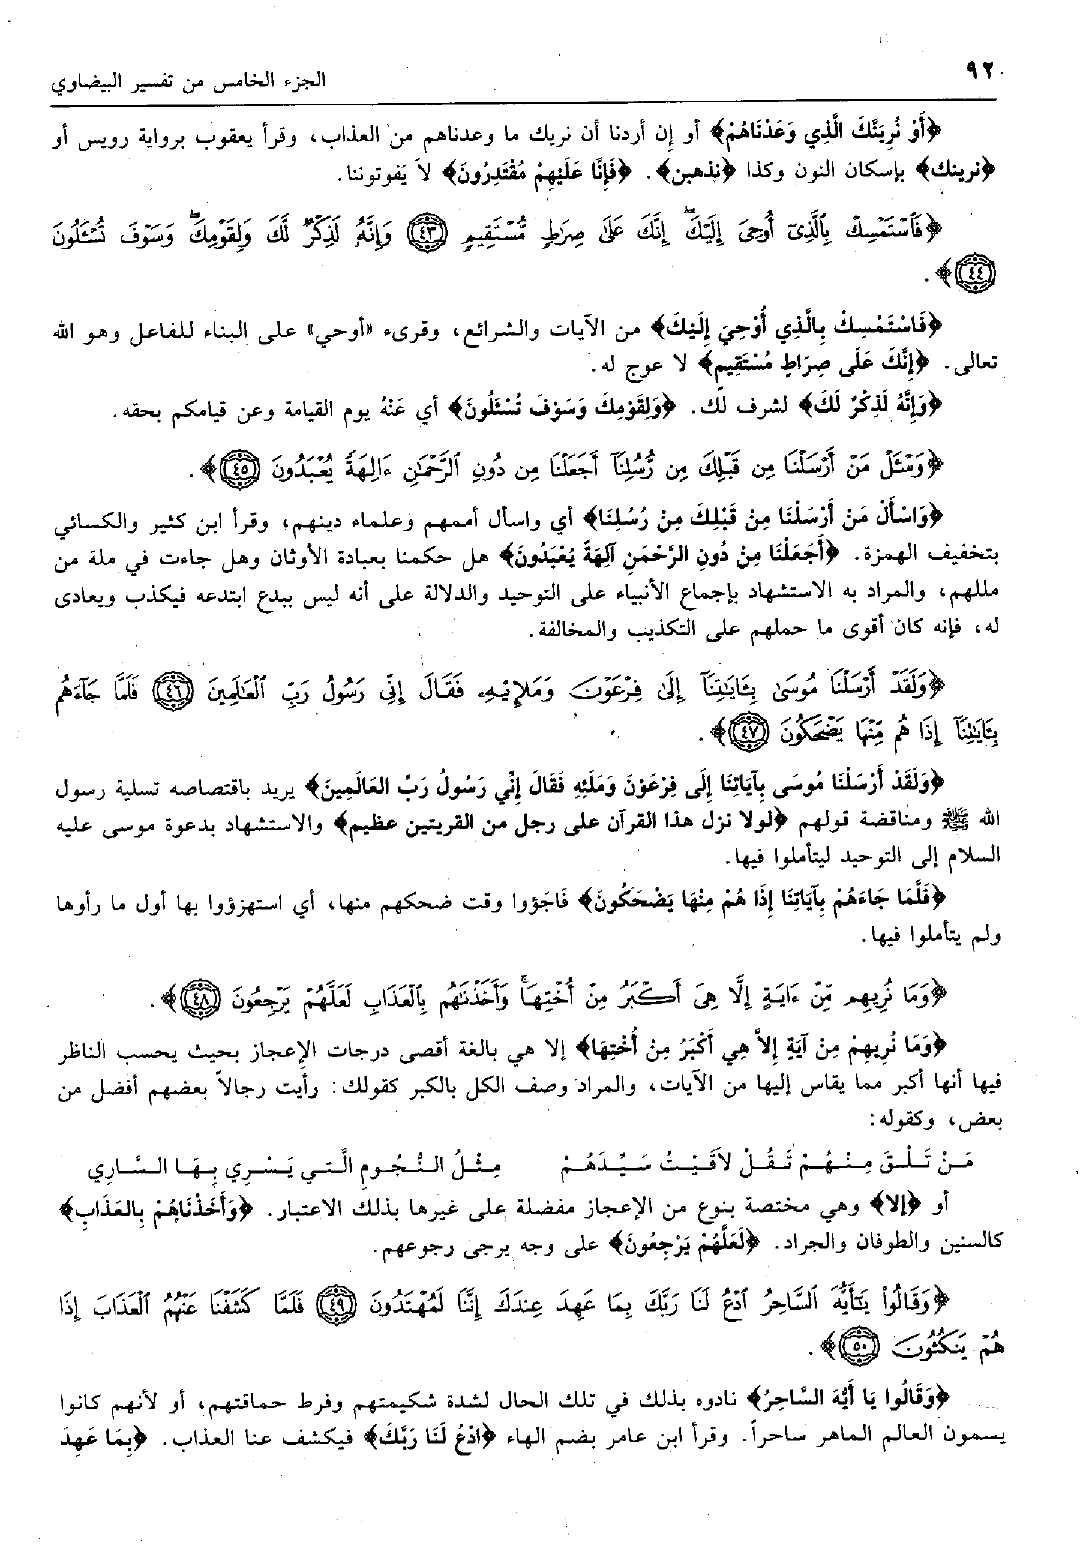 ٩٢
الجزء الخامس من تفسير البيضاوي
﴿أَوْ نُرِيَنَّكَ الَّذِي وَعَدْنَاهُمْ﴾ أو إن أردنا أن نريك ما وعدناهم من العذاب، وقرأ يعقوب برواية رويس أو
﴿نرينك﴾ بإسكان النون وكذا ﴿نذهبن﴾. ﴿فَإِنَّا عَلَيْهِمْ مُقْتَدِرُونَ﴾ لا يفوتوننا.
﴿فَٱسْتَمْسِكْ بِٱلَّذِىٓ أُوحِىَ إِلَيْكَ ۖ إِنَّكَ عَلَىٰ صِرَٰطٍ مُّسْتَقِيمٍ ٤٣ وَإِنَّهُۥ لَذِكْرٌ لَّكَ وَلِقَوْمِكَ ۖ وَسَوْفَ تُسْـَٔلُونَ
٤٤﴾.
﴿فَاسْتَمْسِكْ بِالَّذِي أُوْحِيَ إِلَيْكَ﴾ من الآيات والشرائع، وقرىء «أوحي» على البناء للفاعل وهو الله
تعالى. ﴿إِنَّكَ عَلَى صِرَاطٍ مُسْتَقِيمٍ﴾ لا عوج له.
﴿وَإِنَّهُ لَذِكْرٌ لَكَ﴾ لشرف لك. ﴿وَلِقَوْمِكَ وَسَوْفَ تُسْئَلُونَ﴾ أي عَنْهُ يوم القيامة وعن قيامكم بحقه.
﴿وَسْـَٔلْ مَنْ أَرْسَلْنَا مِن قَبْلِكَ مِن رُّسُلِنَآ أَجَعَلْنَا مِن دُونِ ٱلرَّحْمَٰنِ ءَالِهَةً يُعْبَدُونَ ٤٥﴾.
﴿وَاسْأَلْ مَنْ أَرْسَلْنَا مِنْ قَبْلِكَ مِنْ رُسُلِنَا﴾ أي واسأل أممهم وعلماء دينهم، وقرأ ابن كثير والكسائي
بتخفيف الهمزة. ﴿أَجَعَلْنَا مِنْ دُونِ الرَّحْمَنِ آلِهَةً يُعْبَدُونَ﴾ هل حكمنا بعبادة الأوثان وهل جاءت في ملة من
مللهم، والمراد به الاستشهاد بإجماع الأنبياء على التوحيد والدلالة على أنه ليس ببدع ابتدعه فيكذب ويعادى
له، فإنه كان أقوى ما حملهم على التكذيب والمخالفة.
﴿وَلَقَدْ أَرْسَلْنَا مُوسَىٰ بِـَٔايَٰتِنَآ إِلَىٰ فِرْعَوْنَ وَمَلَإِي۟هِۦ فَقَالَ إِنِّى رَسُولُ رَبِّ ٱلْعَٰلَمِينَ ٤٦ فَلَمَّا جَآءَهُم
بِـَٔايَٰتِنَآ إِذَا هُم مِّنْهَا يَضْحَكُونَ ٤٧﴾.
﴿وَلَقَدْ أَرْسَلْنَا مُوسَى بِآيَاتِنَا إِلَى فِرْعَوْنَ وَمَلَئِهِ فَقَالَ إِنِّي رَسُولُ رَبِّ العَالَمِينَ﴾ يريد باقتصاصه تسلية رسول
الله ﷺ ومناقضة قولهم ﴿لولا نزل هذا القرآن على رجل من القريتين عظيم﴾ والاستشهاد بدعوة موسى عليه
السلام إلى التوحيد ليتأملوا فيها.
﴿فَلَمَّا جَاءَهُمْ بِآيَاتِنَا إِذَا هُمْ مِنْهَا يَضْحَكُونَ﴾ فاجؤوا وقت ضحكهم منها، أي استهزؤوا بها أول ما رأوها
ولم يتأملوا فيها.
﴿وَمَا نُرِيهِم مِّنْ ءَايَةٍ إِلَّا هِىَ أَكْبَرُ مِنْ أُخْتِهَا ۖ وَأَخَذْنَٰهُم بِٱلْعَذَابِ لَعَلَّهُمْ يَرْجِعُونَ ٤٨﴾.
﴿وَمَا نُرِيهِمْ مِنْ آيَةٍ إِلاَّ هِي أَكْبَرُ مِنْ أُخْتِهَا﴾ إلا هي بالغة أقصى درجات الإعجاز بحيث يحسب الناظر
فيها أنها أكبر مما يقاس إليها من الآيات، والمراد وصف الكل بالكبر كقولك: رأيت رجالاً بعضهم أفضل من
بعض، وكقوله:
مَنْ تَلْقَ مِنْهُمْ تَقُلْ لاَقَيْتُ سَيِّدَهُمْ مِثْلُ النُّجُومِ الَّتي يَسْرِي بِهَا السَّارِي
أو ﴿إلا﴾ وهي مختصة بنوع من الإعجاز مفضلة على غيرها بذلك الاعتبار. ﴿وَأَخَذْنَاهُمْ بِالعَذَابِ﴾
كالسنين والطوفان والجراد. ﴿لَعَلَّهُمْ يَرْجِعُونَ﴾ على وجه يرجى رجوعهم.
﴿وَقَالُوا۟ يَٰٓأَيُّهَ ٱلسَّاحِرُ ٱدْعُ لَنَا رَبَّكَ بِمَا عَهِدَ عِندَكَ إِنَّنَا لَمُهْتَدُونَ ٤٩ فَلَمَّا كَشَفْنَا عَنْهُمُ ٱلْعَذَابَ إِذَا
هُمْ يَنكُثُونَ ٥٠﴾.
﴿وَقَالُوا يَا أَيُّهَ السَّاحِرُ﴾ نادوه بذلك في تلك الحال لشدة شكيمتهم وفرط حماقتهم، أو لأنهم كانوا
يسمون العالم الماهر ساحراً. وقرأ ابن عامر بضم الهاء ﴿ادْعُ لَنَا رَبَّكَ﴾ فيكشف عنا العذاب. ﴿بِمَا عَهِدَ